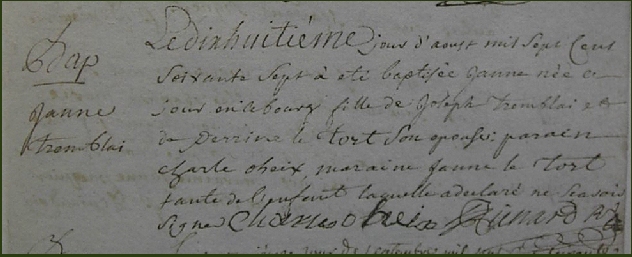 Bap
janne
tremblai
Le dixhuitiéme jour d'aoust mil sept cent
soixante sept à eté baptisée janne née ce
jour en ce bourg fille de Joseph tremblai et
de perrine le tort son epouse; parain
charle oheix maraine janne le tort
tante de l'enfant laquelle a declaré ne sçavoir
signe Charles Oheix
jour de septembre mil sept cent